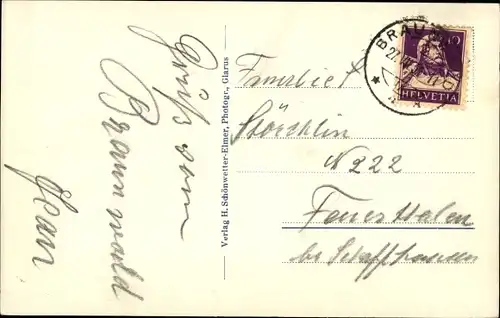 Gruß vom
Braunwald
Jean
Verlag H. Schönwetter-Elmer, Photogr., Glarus
BRAU
10
HELVETIA
Familie
Störchlin
No 222
Feuerthalen
bei Schaffhausen